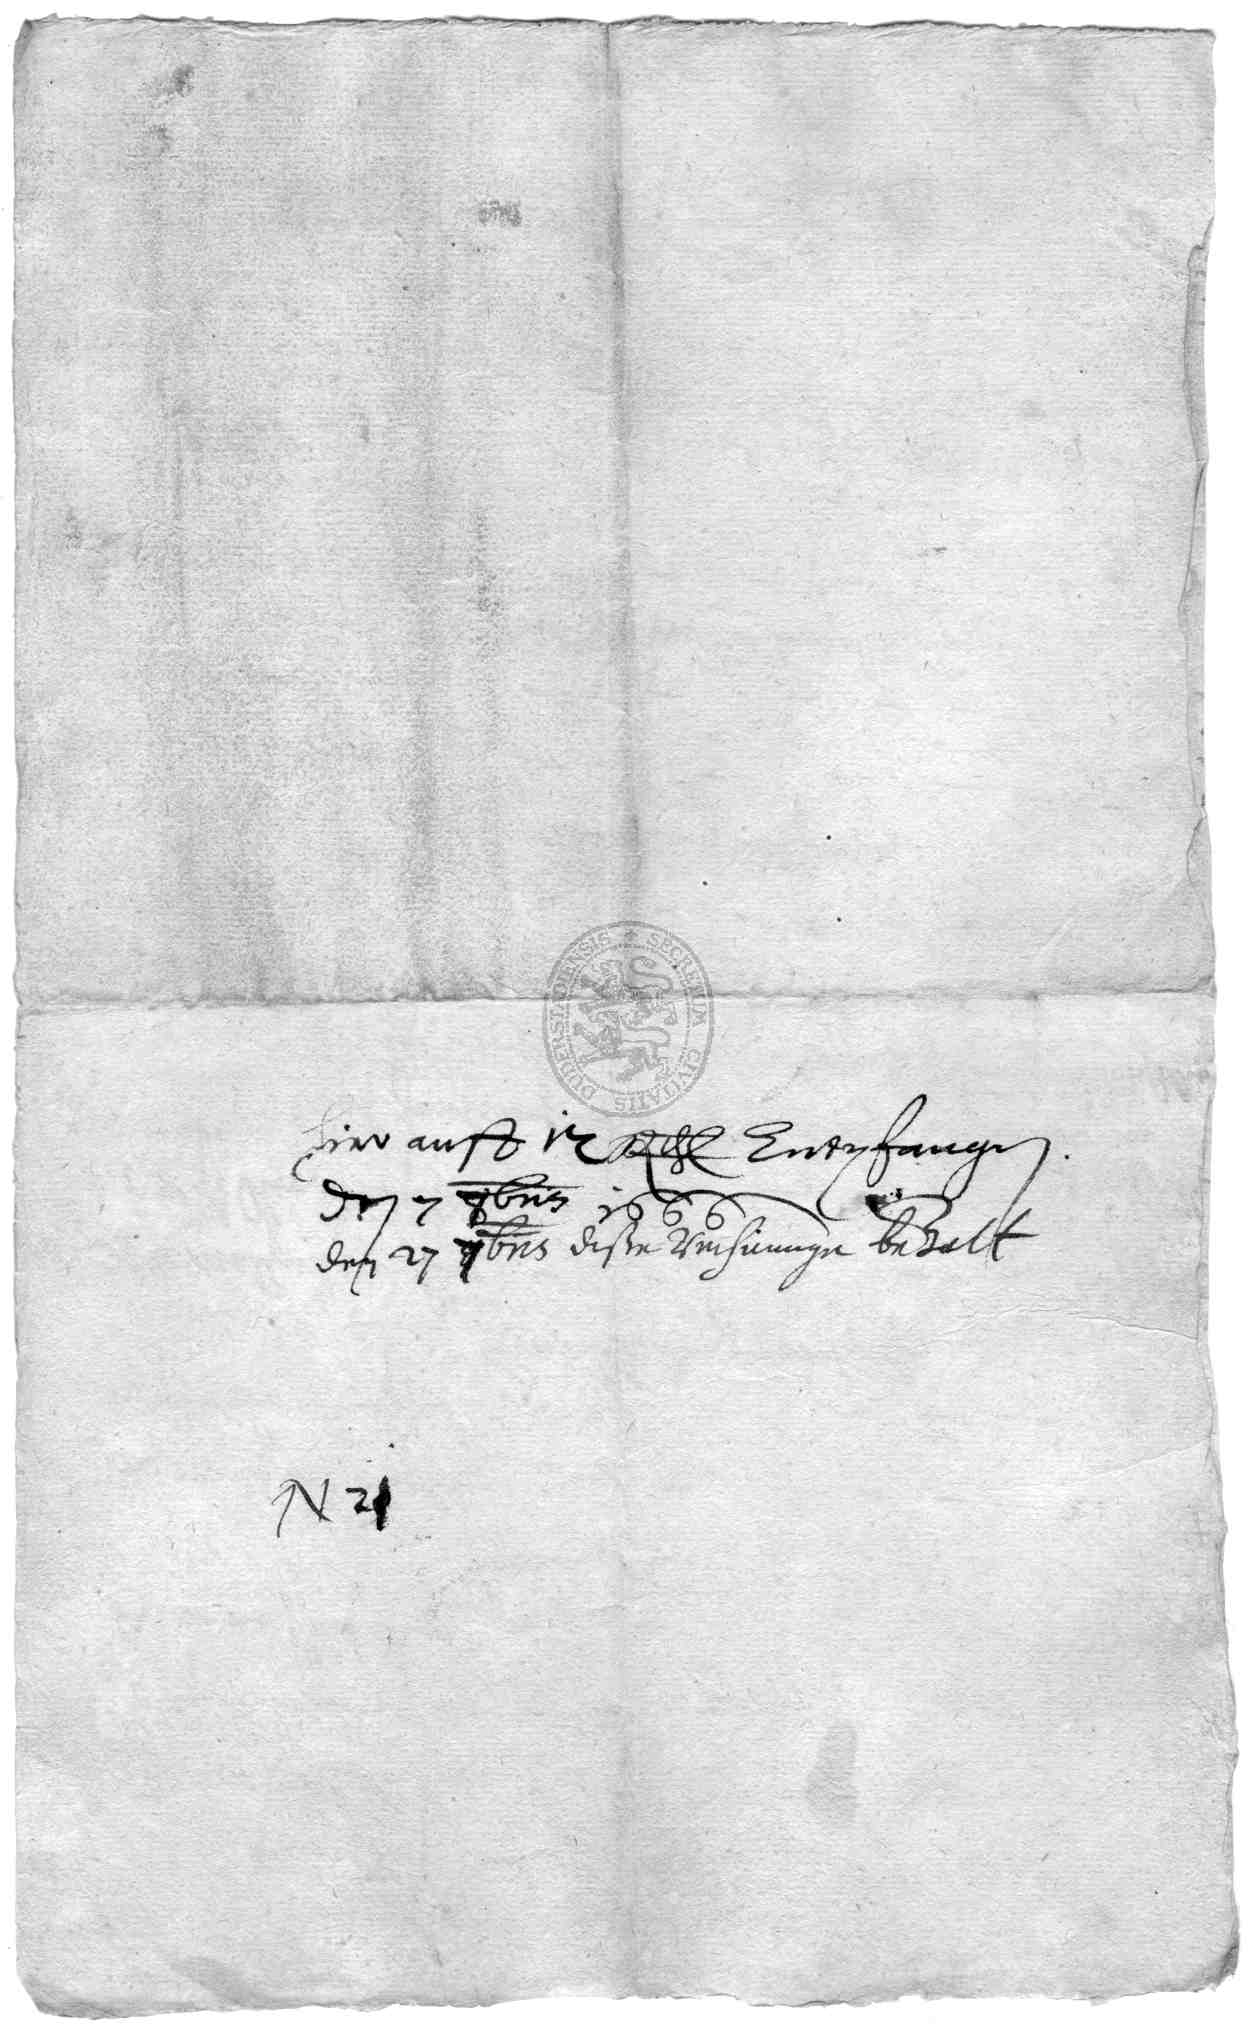 SECRETUM CIVITATIS DUDERSTADENSIS
hier auff 12 Rthl Entpfangen.
den 7 9bris 1666
den 27 9bris diße Rechnunge bezalt
N 21